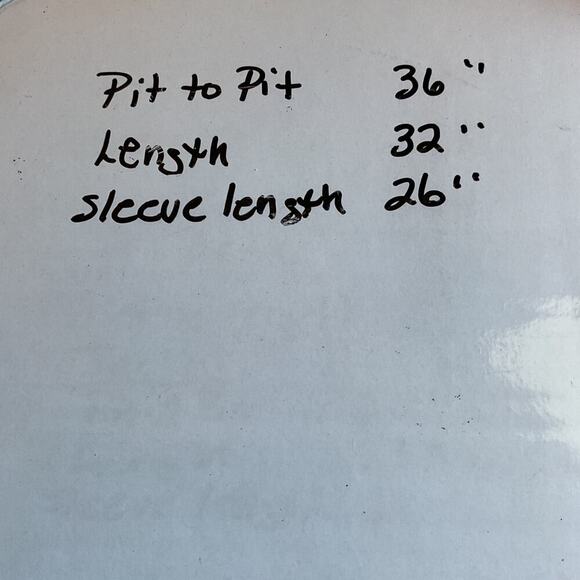 Pit to Pit 36"
Length 32"
sleeve length 26"